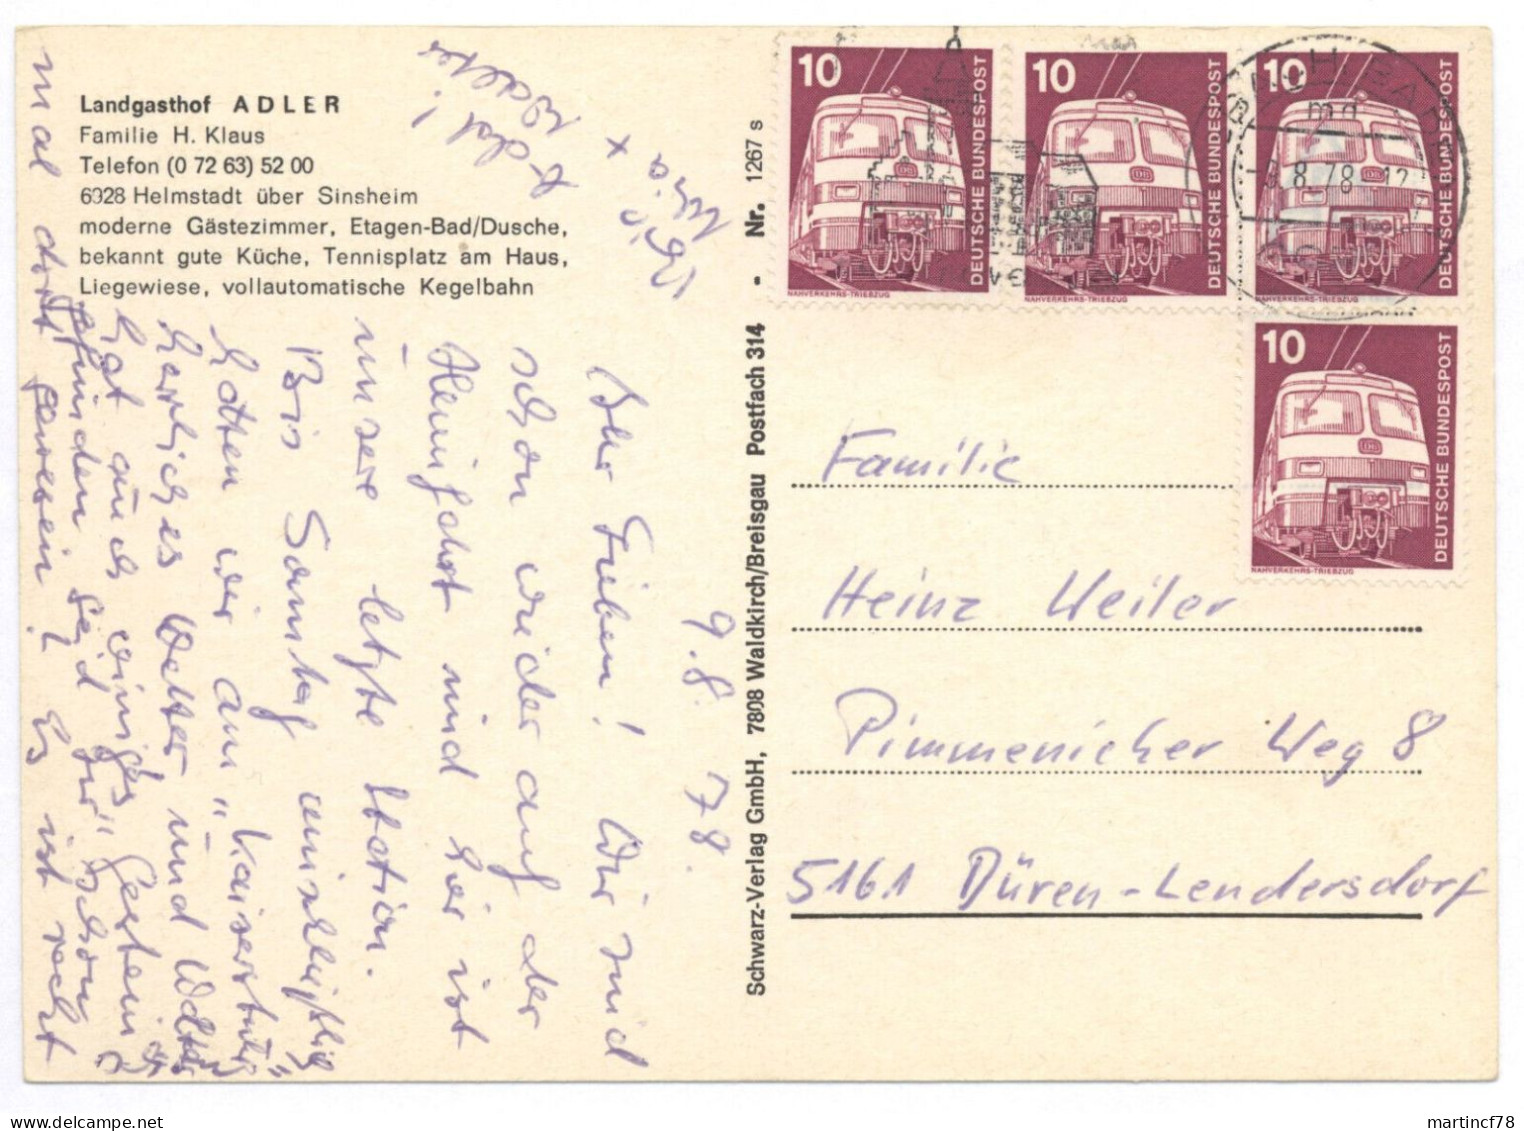 Landgasthof ADLER
Familie H. Klaus
Telefon (0 72 63) 52 00
6928 Helmstadt über Sinsheim
moderne Gästezimmer, Etagen-Bad/Dusche,
bekannt gute Küche, Tennisplatz am Haus,
Liegewiese, vollautomatische Kegelbahn
9.8.78.
Ihr Lieben! Wir sind
schon wieder auf der
Heimfahrt und hier ist
unsere letzte Station.
Bis Samstag einschließlich
hatten wir am "Kaiserstuhl"
herrliches Wetter und Walter
hat auch einiges
gefunden. Seid Ihr schon
mal dort gewesen? Es ist recht
Schwarz-Verlag GmbH, 7808 Waldkirch/Breisgau Postfach 314 - Nr. 1267 s
10
DEUTSCHE BUNDESPOST
NAHVERKEHRS-TRIEBZUG
10
DEUTSCHE BUNDESPOST
NAHVERKEHRS-TRIEBZUG
10
DEUTSCHE BUNDESPOST
NAHVERKEHRS-TRIEBZUG
10
DEUTSCHE BUNDESPOST
NAHVERKEHRS-TRIEBZUG
8.78-12
Familie
Heinz Weiler
Pimmenicher Weg 8
5161 Düren-Lendersdorf
martincf78